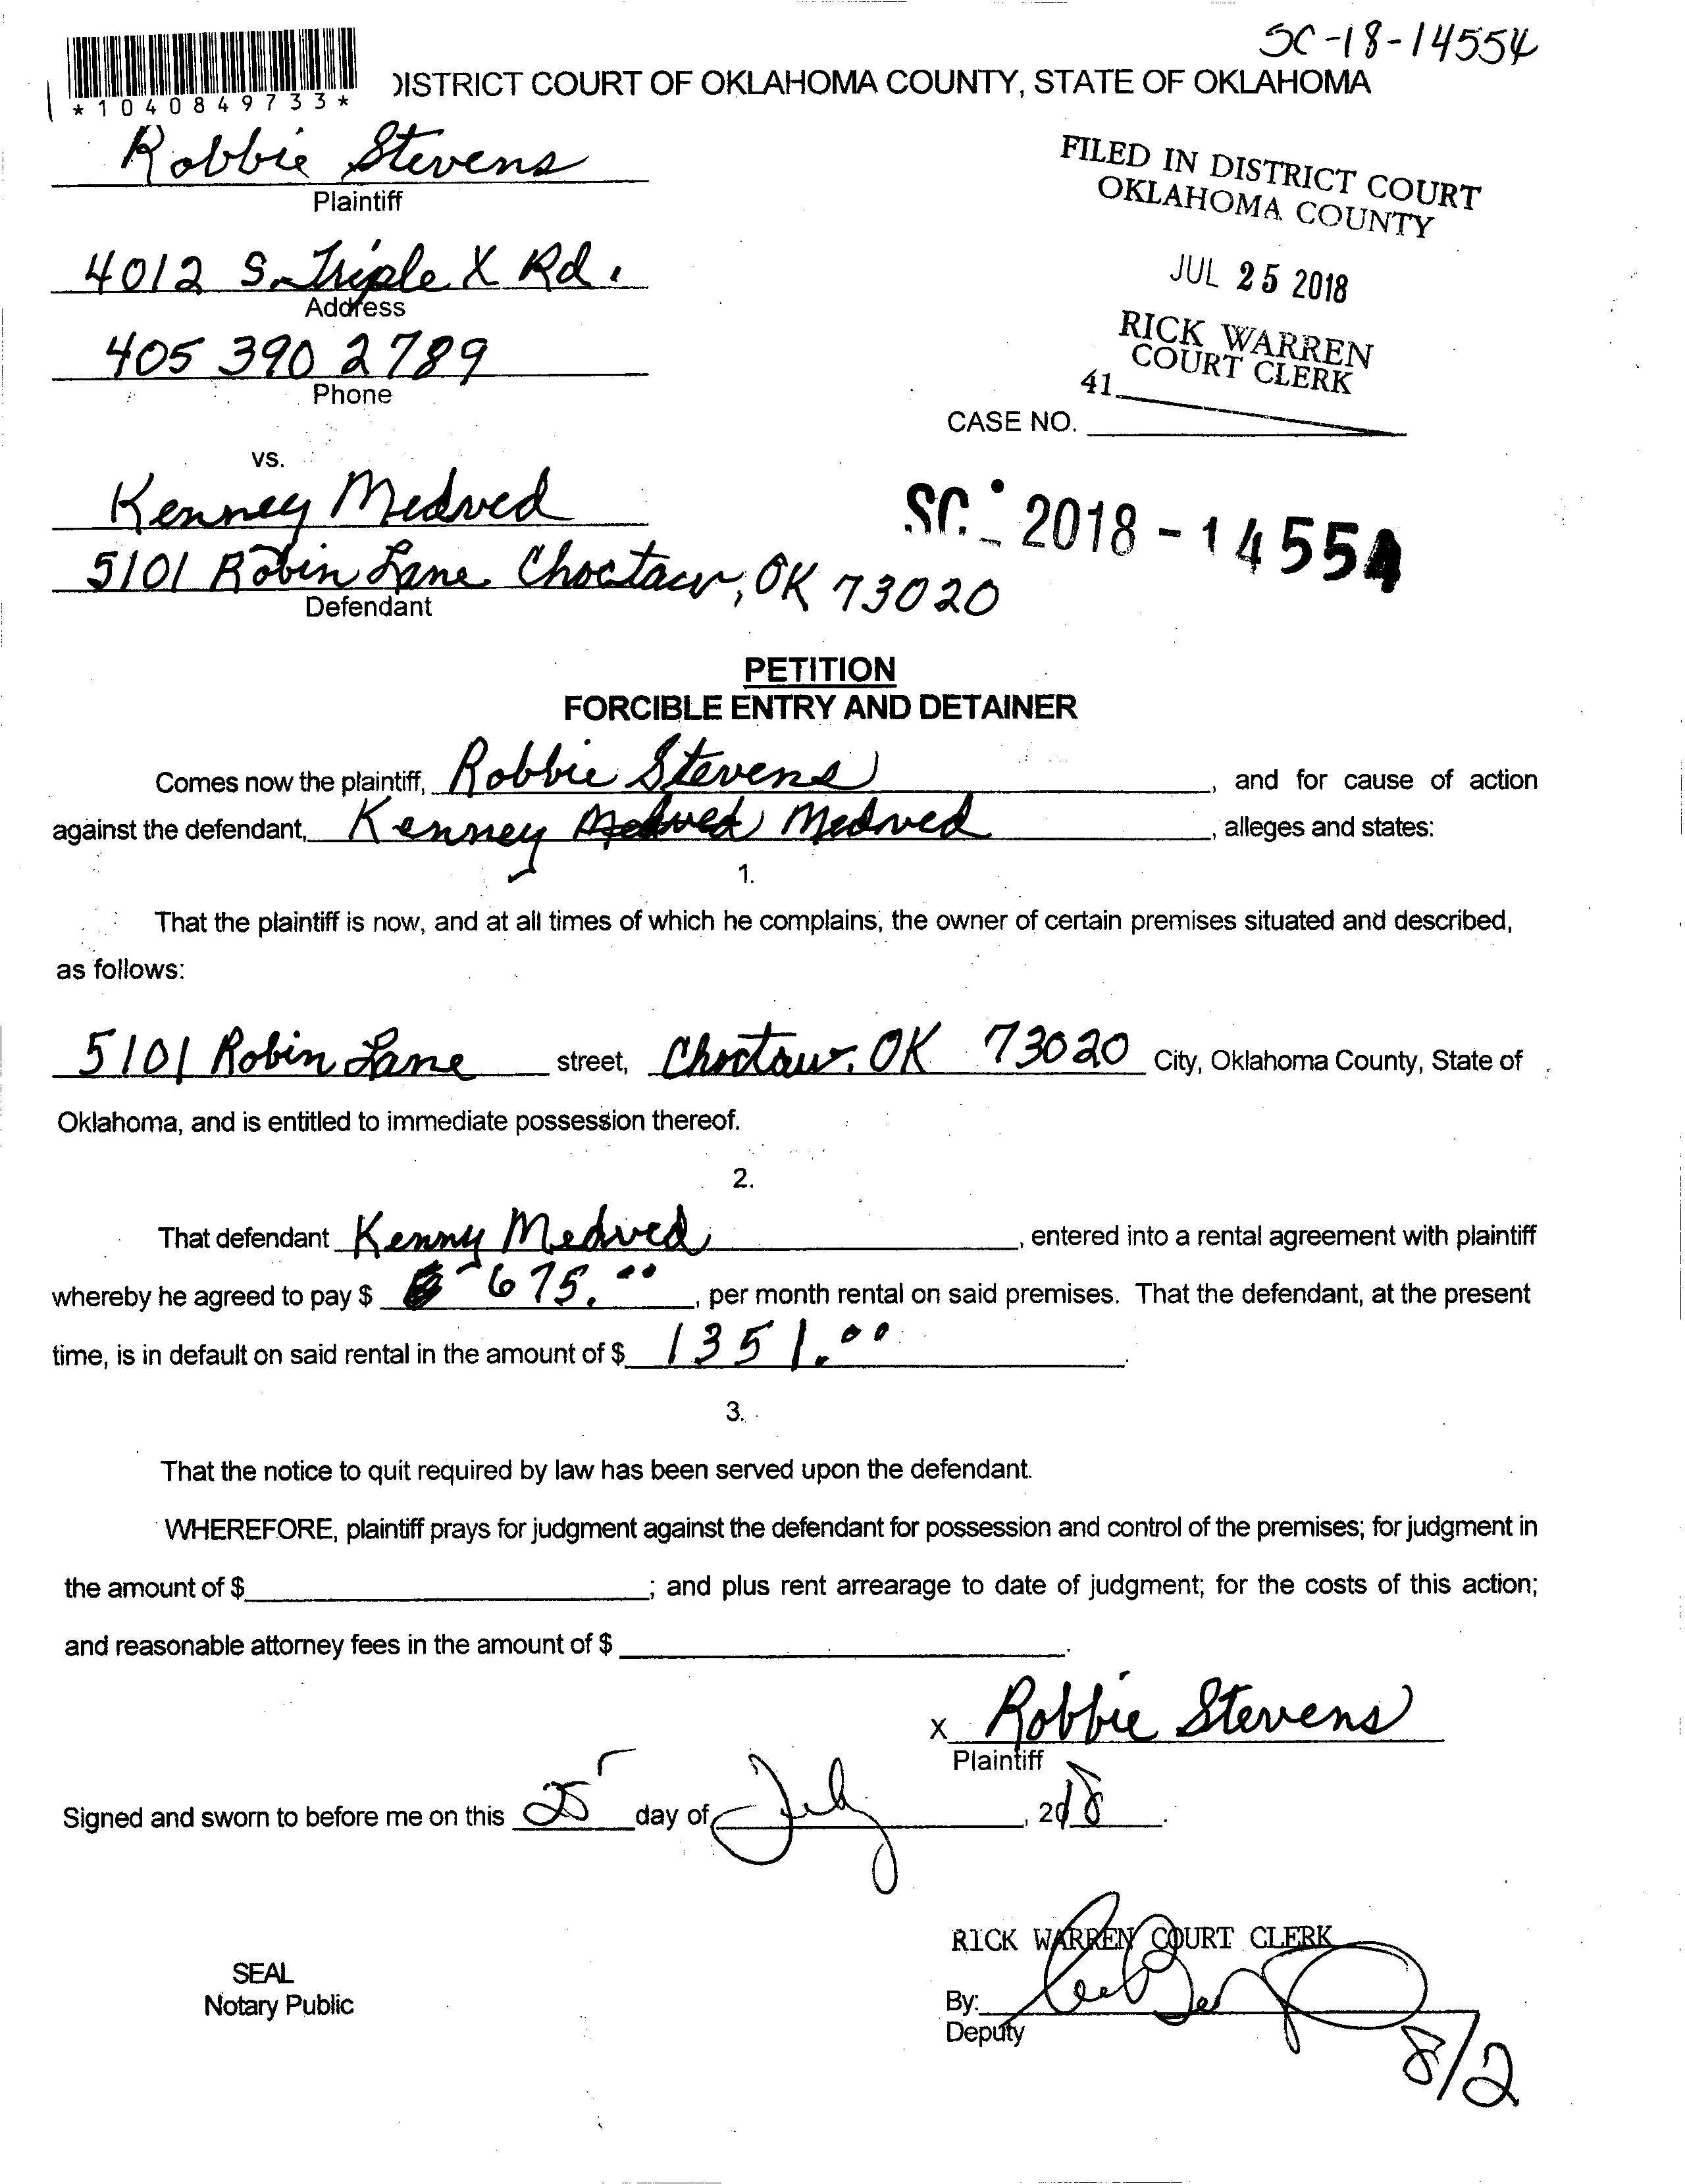 SC-18-14554
*1040849733*
DISTRICT COURT OF OKLAHOMA COUNTY, STATE OF OKLAHOMA
Robbie Stevens
Plaintiff
FILED IN DISTRICT COURT
OKLAHOMA COUNTY
4012 S. Triple X Rd.
Address
JUL 25 2018
405 390 2789
Phone
RICK WARREN
COURT CLERK
41
CASE NO.
vs.
Kenney Medved
SC - 2018 - 14554
5101 Robin Lane Choctaw, OK 73020
Defendant
PETITION
FORCIBLE ENTRY AND DETAINER
Comes now the plaintiff, Robbie Stevens, and for cause of action
against the defendant, Kenney Medved Medved, alleges and states:
1.
That the plaintiff is now, and at all times of which he complains, the owner of certain premises situated and described,
as follows:
5101 Robin Lane street, Choctaw, OK 73020 City, Oklahoma County, State of
Oklahoma, and is entitled to immediate possession thereof.
2.
That defendant Kenny Medved, entered into a rental agreement with plaintiff
whereby he agreed to pay $ 675.00, per month rental on said premises. That the defendant, at the present
time, is in default on said rental in the amount of $ 1351.00.
3.
That the notice to quit required by law has been served upon the defendant.
WHEREFORE, plaintiff prays for judgment against the defendant for possession and control of the premises; for judgment in
the amount of $ ; and plus rent arrearage to date of judgment; for the costs of this action;
and reasonable attorney fees in the amount of $ .
x Robbie Stevens
Plaintiff
Signed and sworn to before me on this 25 day of July, 2018.
RICK WARREN COURT CLERK
SEAL
Notary Public
By:
Deputy
8/2